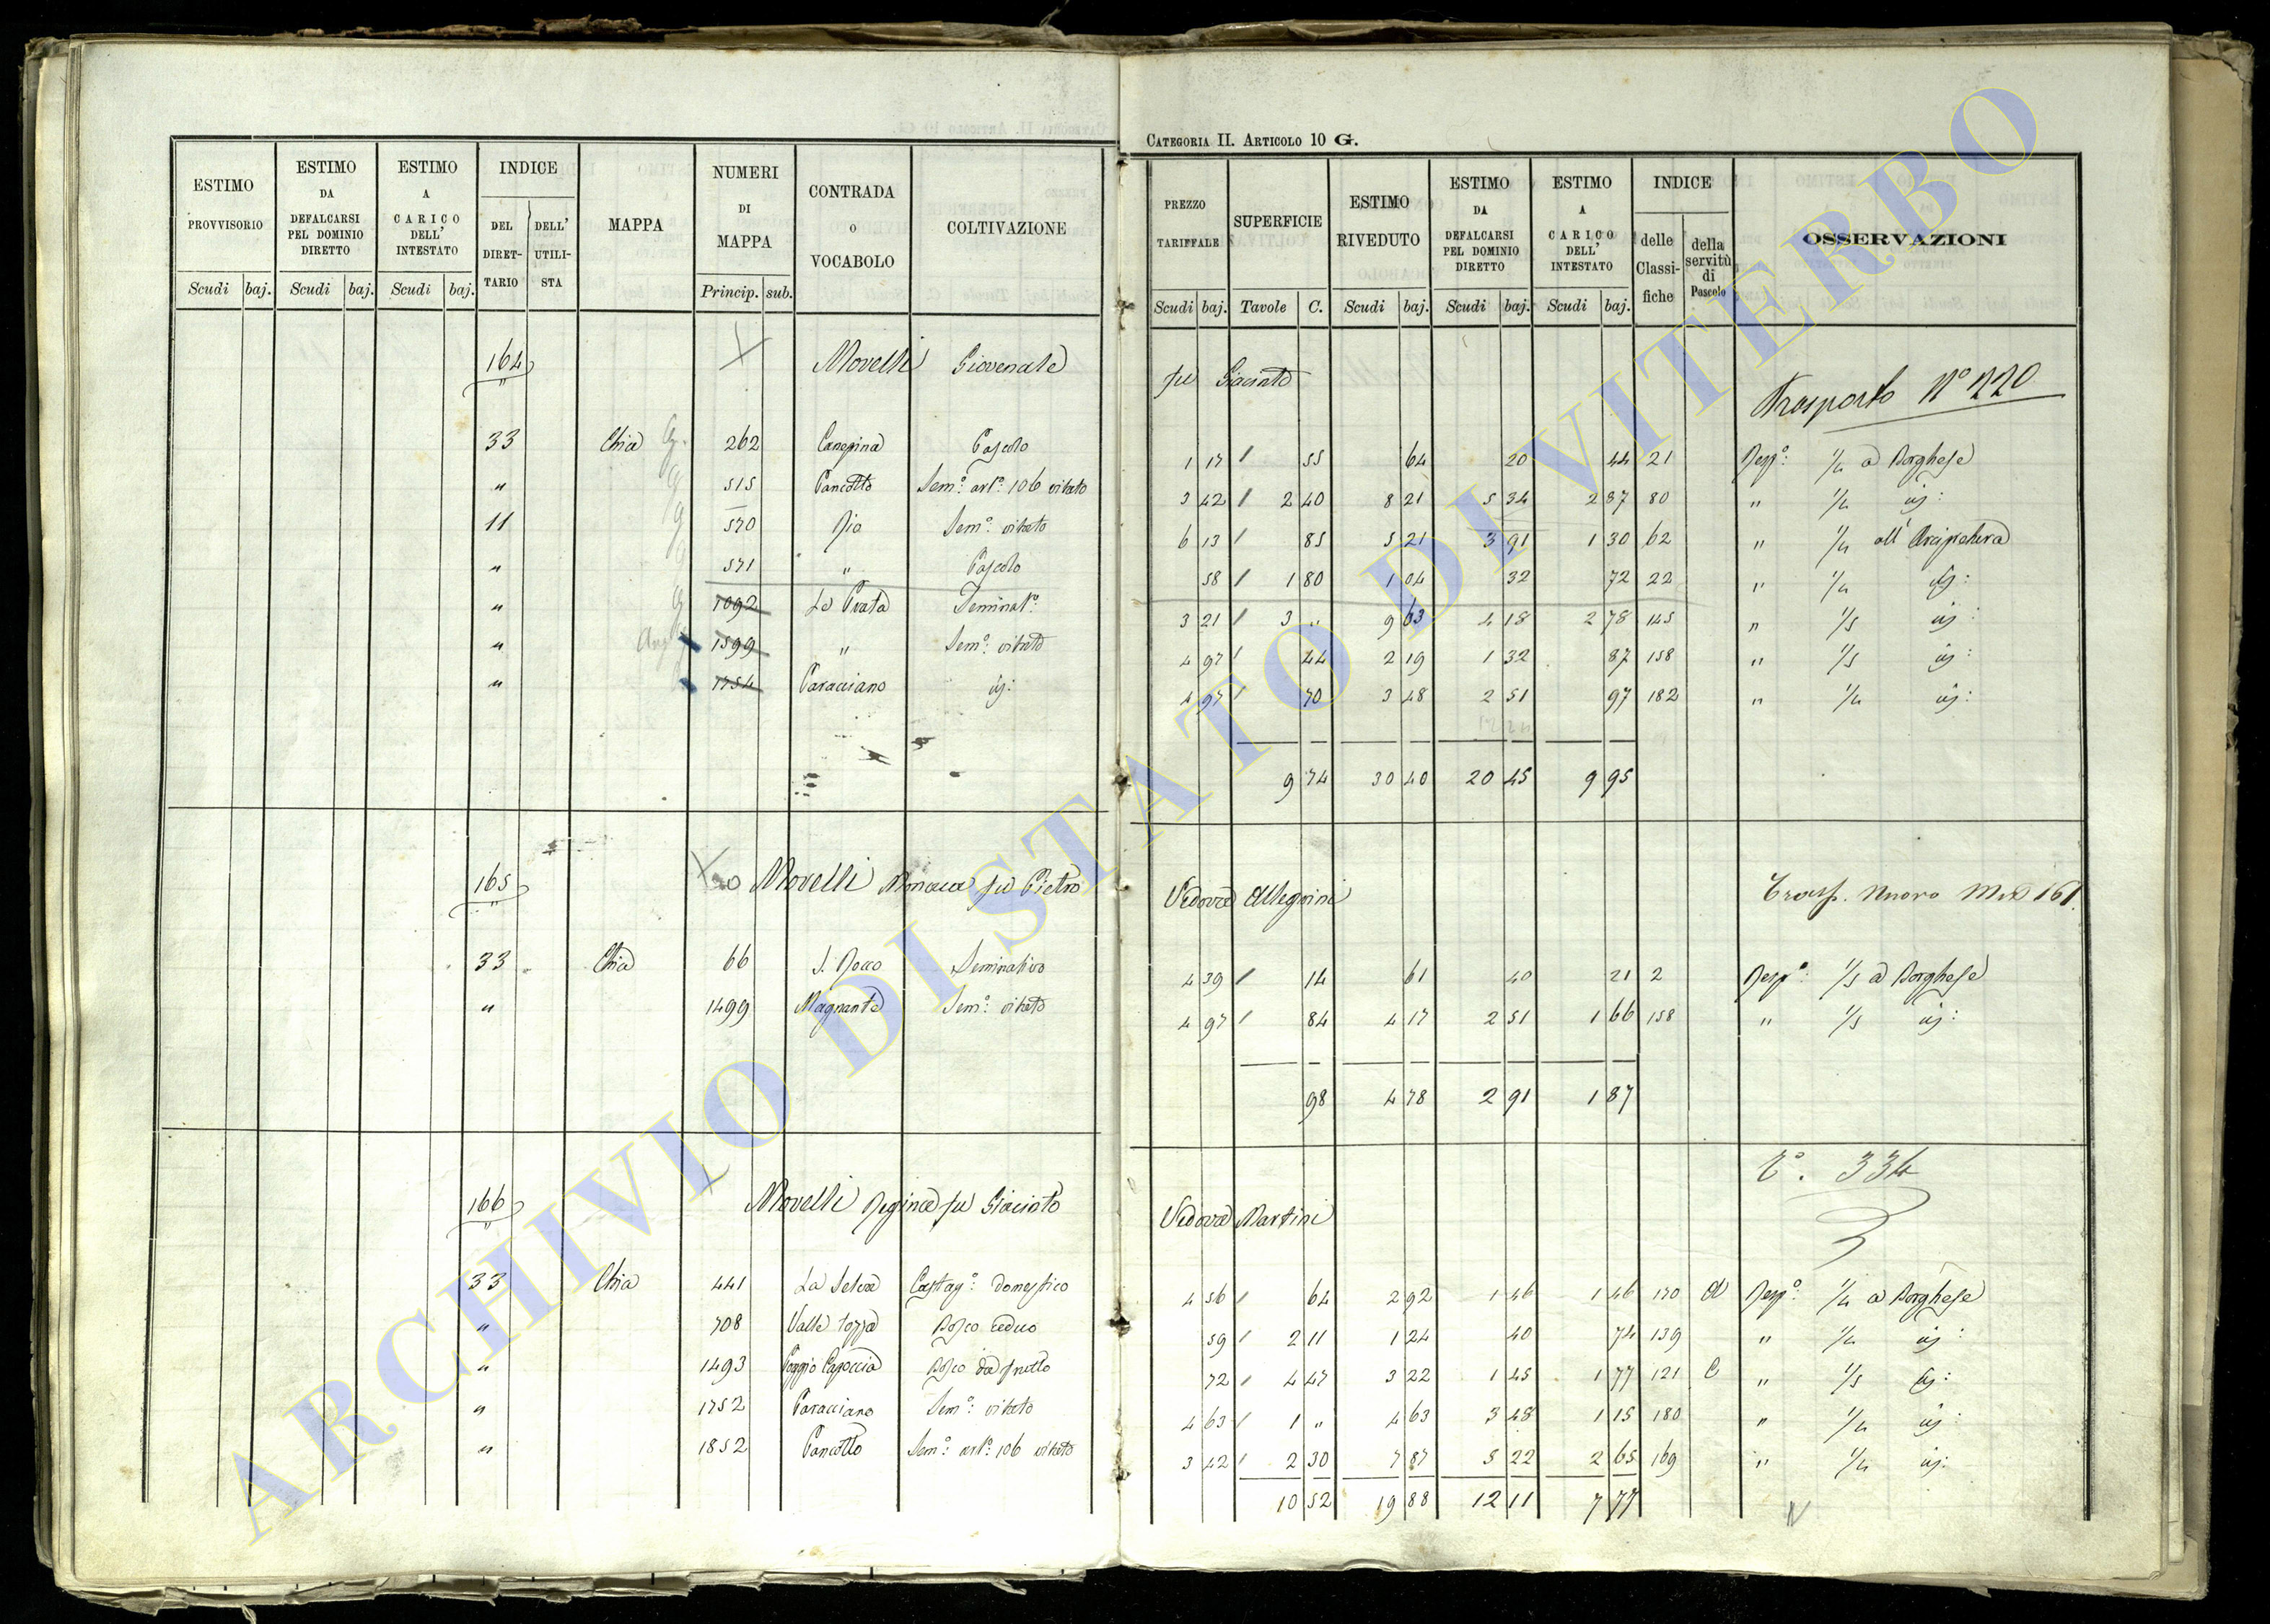 CATEGORIA II. ARTICOLO 10 G.
ESTIMO PROVVISORIO
ESTIMO DA DEFALCARSI PEL DOMINIO DIRETTO
ESTIMO A CARICO DELL' INTESTATO
INDICE
DEL DIRET-TARIO
DELL' UTILI-STA
MAPPA
NUMERI DI MAPPA
CONTRADA O VOCABOLO
COLTIVAZIONE
PREZZO TARIFFALE
SUPERFICIE
ESTIMO RIVEDUTO
ESTIMO DA DEFALCARSI PEL DOMINIO DIRETTO
ESTIMO A CARICO DELL' INTESTATO
INDICE
delle Classi-fiche
della servitù di Pascolo
OSSERVAZIONI
Scudi baj. Scudi baj. Scudi baj. Princip. sub.
Scudi baj. Tavole C. Scudi baj. Scudi baj. Scudi baj.
164 Novelli Giovenale fu Giacinto
Trasporto N° 220
33 Chia 262 Canepina Pascolo 1 17 55 64 20 44 21 Risp°: 1/4 a Borghese
" 515 Pancotto Sem°: art°: 106 vitato 3 42 2 40 8 21 5 34 2 87 80 " 1/4 id:
11 570 Rio Sem°: vitato 6 13 85 5 21 3 91 1 30 62 " 1/4 all' Arcipretura
" 571 " Pascolo 58 1 80 1 04 32 72 22 " 1/4 id:
" 1092 La Prata Seminat°: 3 21 3 " 9 63 4 18 2 78 145 " 1/5 id:
" 1599 " Sem°: vitato 4 97 44 2 19 1 32 87 158 " 1/5 id:
" 1754 Caracciano id: 4 97 70 3 48 2 51 97 182 " 1/4 id:
9 74 30 40 20 45 9 95
165 Novelli Monaca fu Pietro Vedova Allegrini
Trasp. Nuovo Mod 161
33 Chia 66 S. Rocco Seminativo 4 39 14 61 40 21 2 Risp°: 1/5 a Borghese
" 1499 Magnante Sem°: vitato 4 97 84 4 17 2 51 1 66 158 " 1/5 id:
98 4 78 2 91 1 87
T°. 334
166 Novelli Regina fu Giacinto Vedova Martini
33 Chia 441 La Selva Castag°: domestico 4 56 64 2 92 1 46 1 46 170 A Risp°: 1/4 a Borghese
" 708 Valle Bosco ceduo 59 2 11 1 24 40 74 139 " 1/4 id:
" 1493 Poggio Bosco da frutto 72 4 47 3 22 1 45 1 77 121 C " 1/5 id:
" 1752 Caracciano Sem°: vitato 4 63 1 " 4 63 3 48 1 15 180 " 1/4 id:
" 1852 Pancotto Sem°: art°: 106 vitato 3 42 2 30 7 87 5 22 2 65 169 " 1/4 id:
10 52 19 88 12 11 7 77
ARCHIVIO DI STATO DI VITERBO